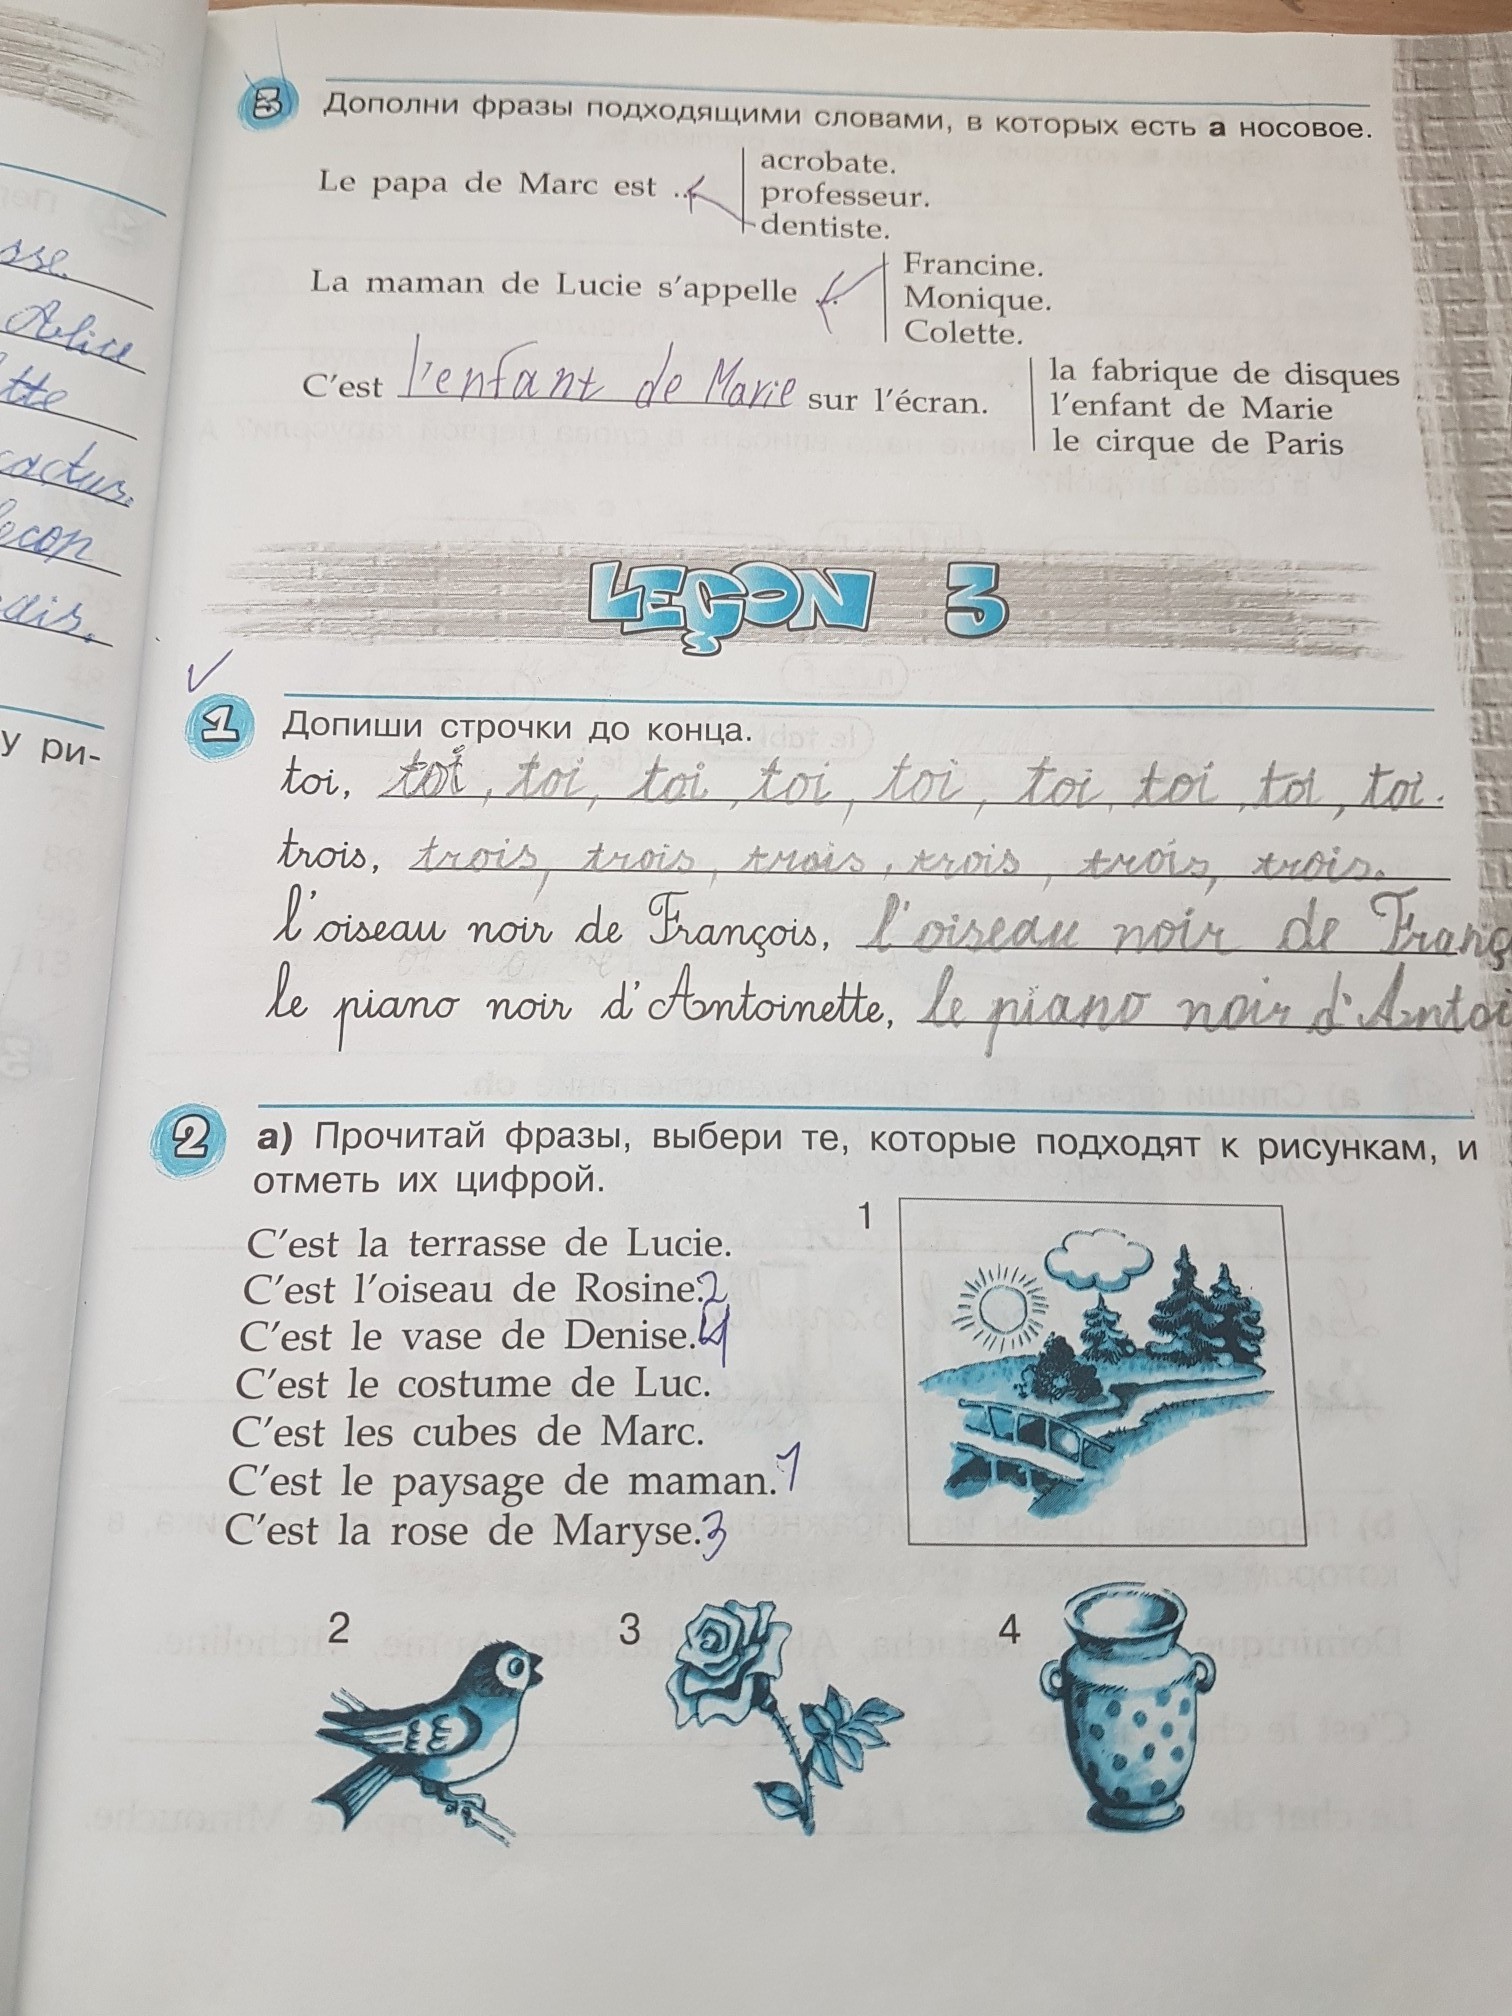 5 Дополни фразы подходящими словами, в которых есть а носовое.
Le papa de Marc est ...
acrobate.
professeur.
dentiste.
La maman de Lucie s'appelle ...
Francine.
Monique.
Colette.
C'est l'enfant de Marie sur l'écran.
la fabrique de disques
l'enfant de Marie
le cirque de Paris
LEÇON 3
1 Допиши строчки до конца.
toi, toi, toi, toi, toi, toi, toi, toi, toi, toi.
trois, trois, trois, trois, trois, trois, trois.
l'oiseau noir de François, l'oiseau noir de Franç
le piano noir d'Antoinette, le piano noir d'Antoi
2 а) Прочитай фразы, выбери те, которые подходят к рисункам, и
отметь их цифрой.
C'est la terrasse de Lucie.
C'est l'oiseau de Rosine. 2
C'est le vase de Denise. 4
C'est le costume de Luc.
C'est les cubes de Marc.
C'est le paysage de maman. 1
C'est la rose de Maryse. 3
1
2
3
4
sse.
Alice
tte
cactus.
leçon
ais.
у ри-